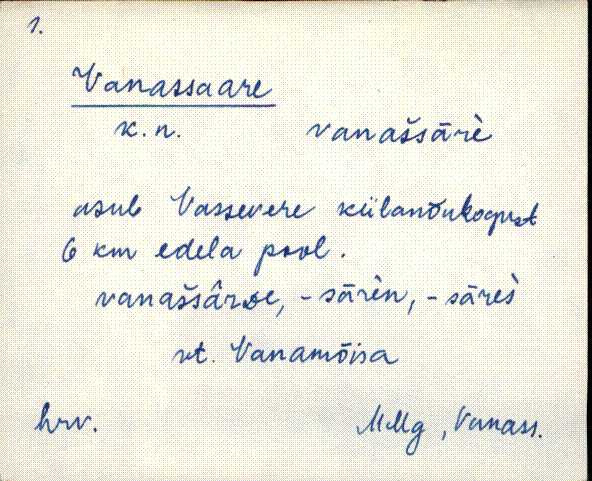 1.
Vanassaare
k.n. vanaššārè
asub Vassevere külanõukogust
6 km edela pool.
vanaššârde, -sārèn, -sāres̀
vt. Vanamõisa
hrv. MMg, Vanass.